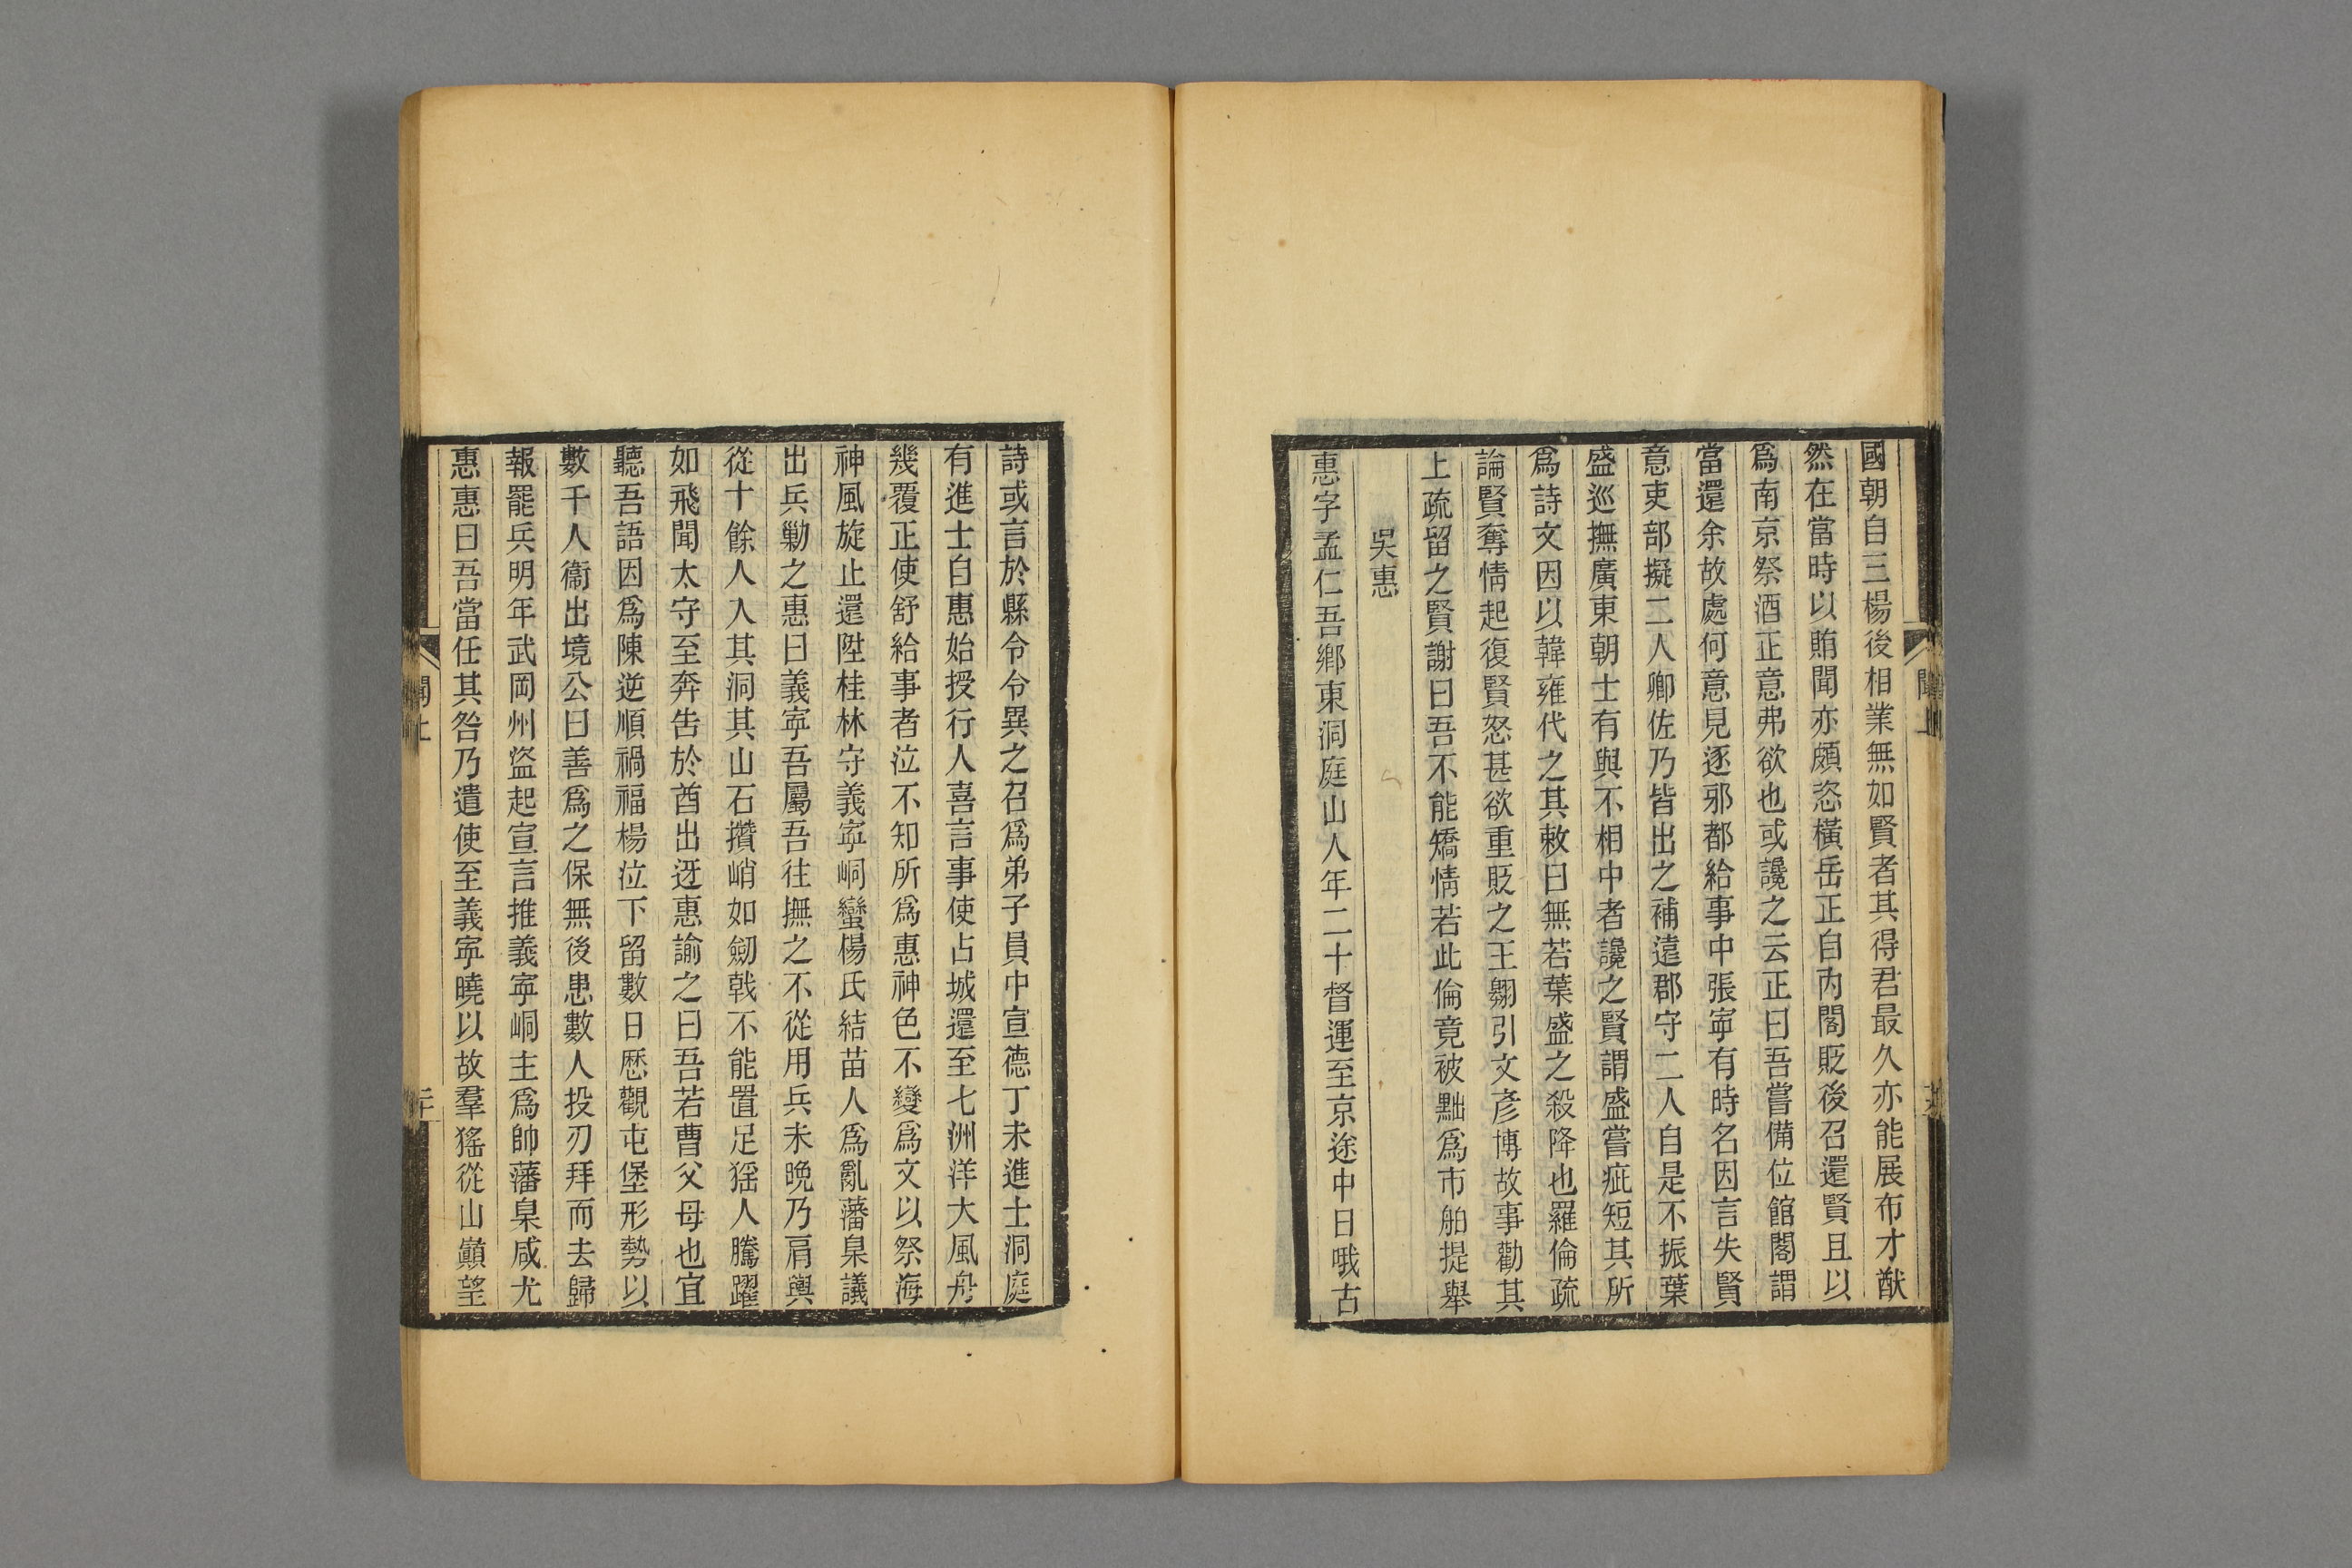 國朝自三楊後相業無如賢者其得君最久亦能展布才猷
然在當時以賄聞亦頗恣橫岳正自內閣貶後召還賢且以
爲南京祭酒正意弗欲也或讒之云正曰吾嘗備位館閣謂
當還余故處何意見逐邪都給事中張寧有時名因言失賢
意吏部擬二人卿佐乃皆出之補遠郡守二人自是不振葉
盛巡撫廣東朝士有與不相中者讒之賢謂盛嘗疵短其所
爲詩文因以韓雍代之其敕曰無若葉盛之殺降也羅倫疏
論賢奪情起復賢怒甚欲重貶之王翱引文彥博故事勸其
上疏留之賢謝曰吾不能矯情若此倫竟被黜爲市舶提舉
吳惠
惠字孟仁吾鄉東洞庭山人年二十督運至京途中日哦古
詩或言於縣令令異之召爲弟子員中宣德丁未進士洞庭
有進士自惠始授行人喜言事使占城還至七洲洋大風舟
幾覆正使舒給事者泣不知所爲惠神色不變爲文以祭海
神風旋止還陞桂林守義寧峒蠻楊氏結苗人爲亂藩臬議
出兵勦之惠曰義寧吾屬吾往撫之不從用兵未晚乃肩輿
從十餘人入其洞其山石攢峭如劒戟不能置足猺人騰躍
如飛聞太守至奔告於酋出迓惠諭之曰吾若曹父母也宜
聽吾語因爲陳逆順禍福楊泣下留數日歷觀屯堡形勢以
數千人衞出境公曰善爲之保無後患數人投刃拜而去歸
報罷兵明年武岡州盜起宣言推義寧峒主爲帥藩臬咸尤
惠惠曰吾當任其咎乃遣使至義寧曉以故羣猺從山巔望
聞上